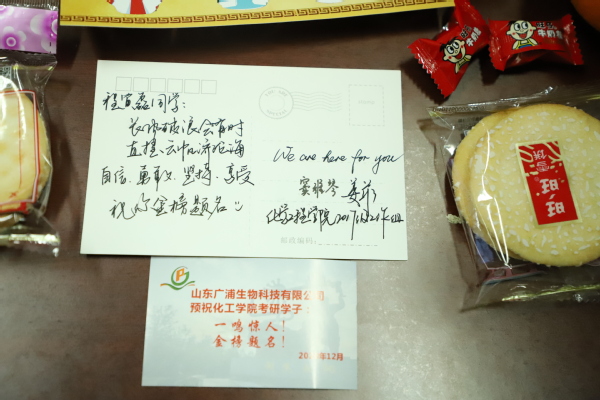 程宣磊同学:
长风破浪会有时
直挂云帆济沧海
自信、勇敢、坚持、享受
祝你金榜题名
We are here for you
化学工程学院
邮政编码:
山东广浦生物科技有限公司
预祝化工学院考研学子:
一鸣惊人!
金榜题名!
年12月
牛奶糖
牛奶糖
雪饼
旺旺